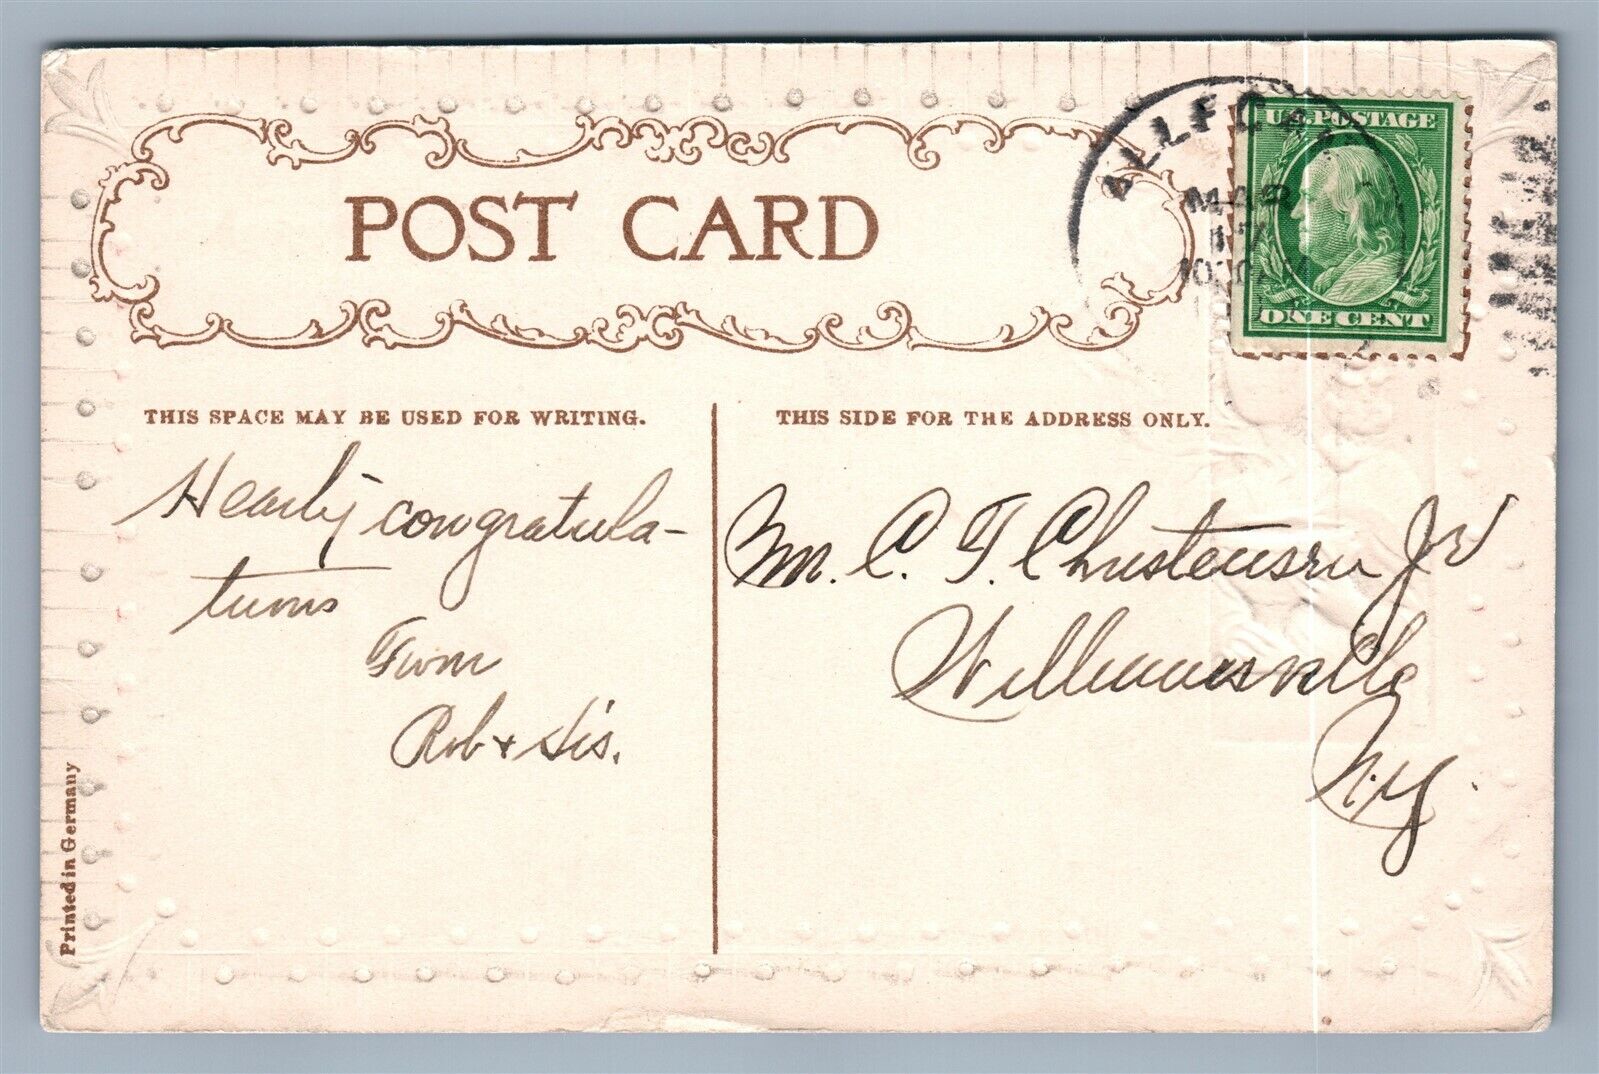 POST CARD
U.S. POSTAGE
ONE CENT
MAR
17
THIS SPACE MAY BE USED FOR WRITING.
THIS SIDE FOR THE ADDRESS ONLY.
Hearty congratula-
tions
From
Rob + Sis.
Mr. C. F. Christensen Jr
Williamsville
N.Y.
Printed in Germany